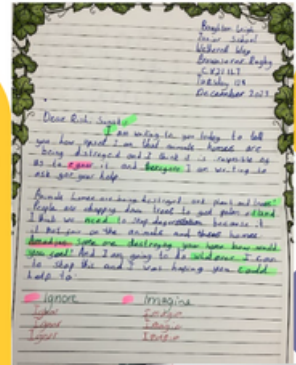 Boughton Leigh
Junior School
Wetherell Way
Brownsover Rugby
CV21 1LT
Tuesday 12th
December 2023
Dear Rishi Sunak,
I am writing to you today to tell
you how upset I am that animals homes are
being distroyed and I think it is
as to ignore it and therefore I am writing to
ask for your help.
Animals homes are being distroyed and plant and
People are chopping down trees to get palm oil and
I that we need to stop because it
it not fair on the animals and there homes.
Imagine some one destroying your home how would
you feel? And I am going to do whatever I can
to stop this and I was hoping you could
help to.
Ignore Imagine
Ignor Imagin
Ignor Imagin
Ignor Imagin